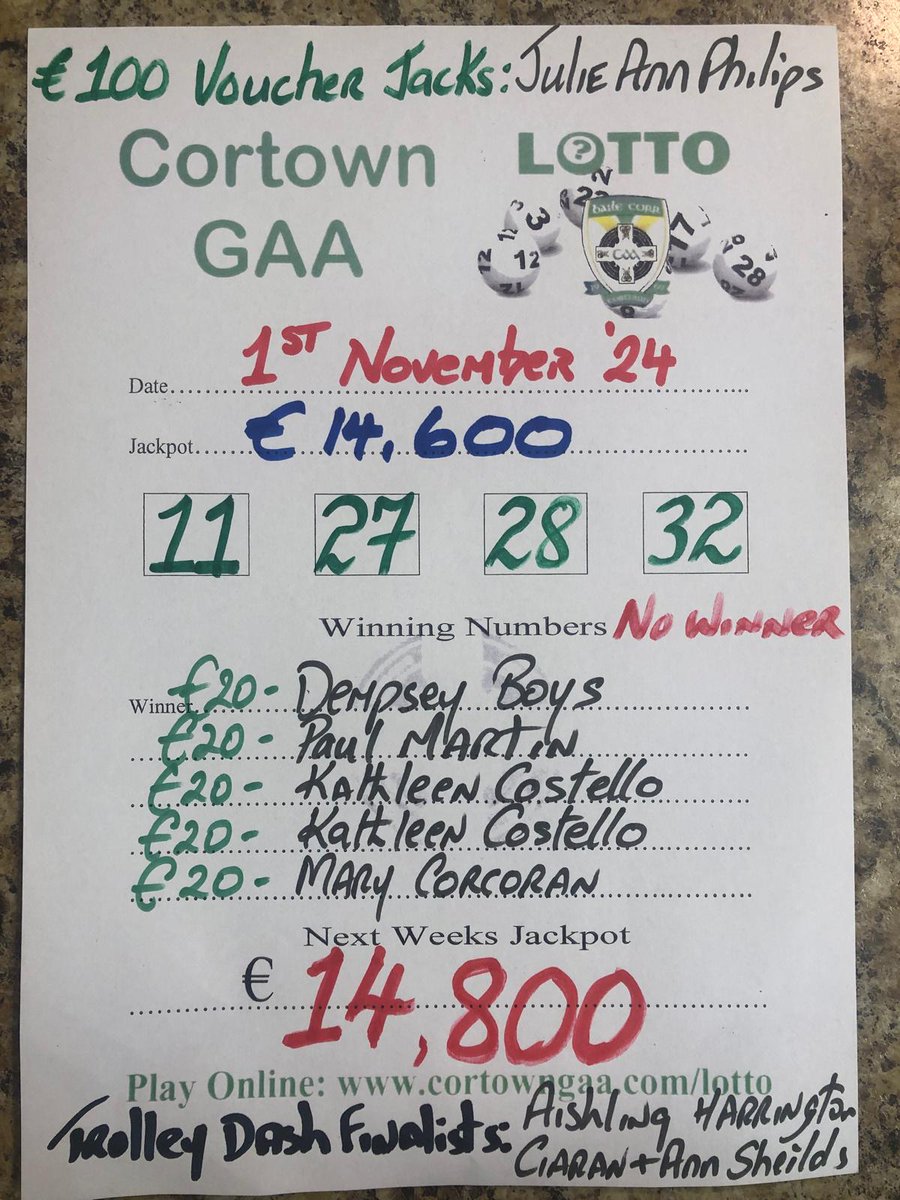 €100 Voucher Jacks: Julie Ann Philips
Cortown
GAA
LOTTO
BAILE CORR
GAA
12
12
3
17
28
Date 1ST November '24
Jackpot €14,600
11 27 28 32
Winning Numbers No WINNER
Winner €20- Dempsey Boys
€20- Paul Martin
€20- Kathleen Costello
€20- Kathleen Costello
€20- Mary Corcoran
Next Weeks Jackpot
€ 14,800
Play Online: www.cortowngaa.com/lotto
Trolley Dash Finalists: Aishling Harrington
Ciaran + Ann Sheilds